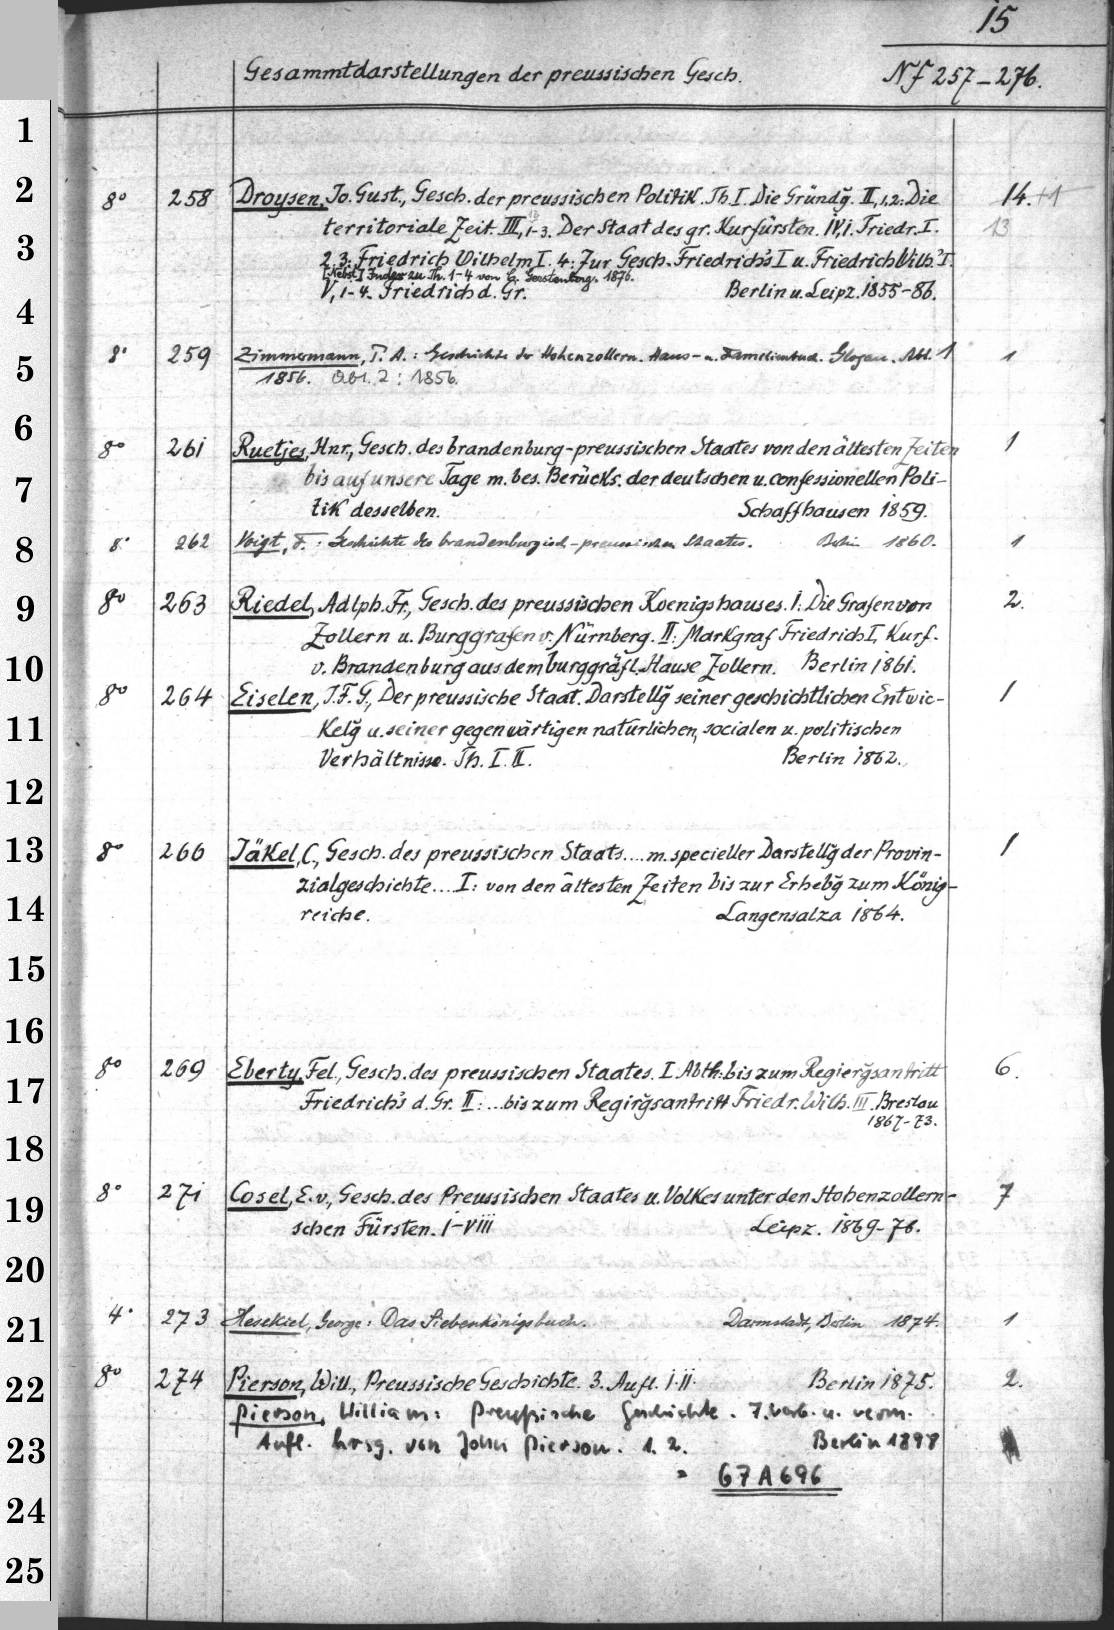 15
Gesammtdarstellungen der preussischen Gesch. Nf 257-276.
1
2
3
4
5
6
7
8
9
10
11
12
13
14
15
16
17
18
19
20
21
22
23
24
25
8° 258 Droysen, Jo. Gust., Gesch. der preussischen Politik. Th. I. Die Gründg̃. II, 1,2: Die 14. +1
territoriale Zeit. III, 1-3. Der Staat des gr. Kurfürsten. IV, 1. Friedr. I. 13
2.3: Friedrich Wilhelm I. 4: Zur Gesch. Friedrich's I u. Friedrich Wilh.'s I.
[Nebst] Index zu Th. 1-4 von C. Gerstenberg. 1876.
V, 1-4. Friedrich d. Gr. Berlin u. Leipz. 1855-86.
8° 259 Zimmermann, P. A.: Geschichte der Hohenzollern. Haus- u. Familienbuch. Glogau. Abt. 1 1
1856. Abt. 2: 1856.
8° 261 Ruetjes, Hnr., Gesch. des brandenburg-preussischen Staates von den ältesten Zeiten 1
bis auf unsere Tage m. bes. Berücks. der deutschen u. confessionellen Poli-
tik desselben. Schaffhausen 1859.
8° 262 Voigt, F.: Geschichte des brandenburgisch-preussischen Staates. Berlin 1860. 1
8° 263 Riedel, Adlph. Fr., Gesch. des preussischen Koenigshauses. I: Die Grafen von 2.
Zollern u. Burggrafen v. Nürnberg. II: Markgraf Friedrich I, Kurf.
v. Brandenburg aus dem burggräfl. Hause Zollern. Berlin 1861.
8° 264 Eiselen, J. F. G., Der preussische Staat. Darstellg̃ seiner geschichtlichen Entwic- 1
kelg̃ u. seiner gegenwärtigen naturlichen, socialen u. politischen
Verhältnisse. Th. I. II. Berlin 1862.
8° 266 Jäkel, C., Gesch. des preussischen Staats.... m. specieller Darstellg̃ der Provin- 1
zialgeschichte... I: von den ältesten Zeiten bis zur Erhebg̃ zum König-
reiche. Langensalza 1864.
8° 269 Eberty, Fel., Gesch. des preussischen Staates. I. Abth: bis zum Regierg̃santritt 6.
Friedrich's d. Gr. II: ... bis zum Regirg̃santritt Friedr. Wilh. III. Breslau
1867-73.
8° 271 Cosel, E. v., Gesch. des Preussischen Staates u. Volkes unter den Hohenzollern- 7
schen Fürsten. I-VIII Leipz. 1869-76.
4° 273 Hesekiel, George: Das Siebenkönigsbuch. Darmstadt, Berlin 1874. 1
8° 274 Pierson, Will., Preussische Geschichte. 3. Aufl. I. II. Berlin 1875. 2.
Pierson, William: Preußische Geschichte. 7. verb. u. verm.
Aufl. hrsg. von John Pierson. 1. 2. Berlin 1898
= 67 A 696